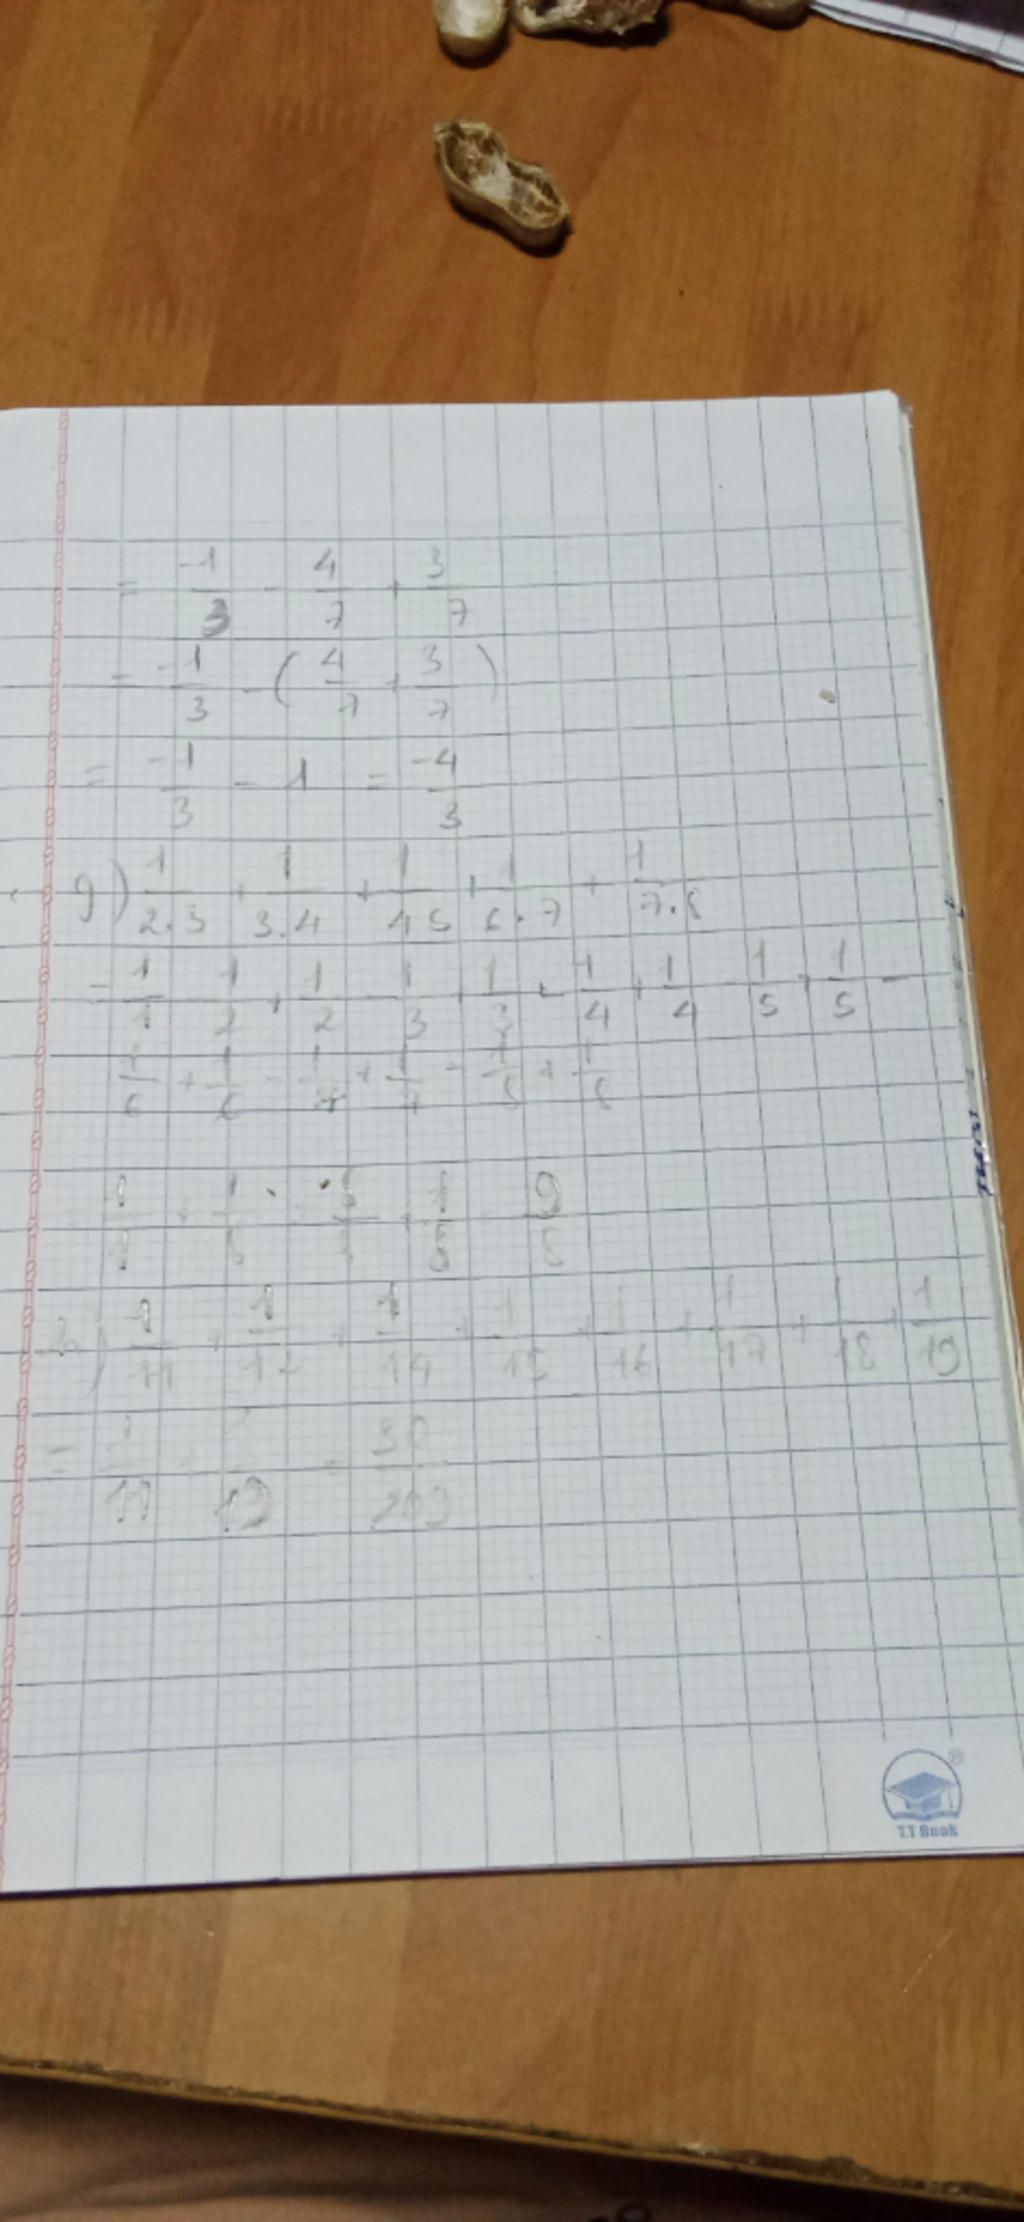 = -1/3 - 4/7 + 3/7
= -1/3 - (4/7 + 3/7)
= -1/3 - 1 = -4/3
g) 1/2.3 + 1/3.4 + 1/4.5 + 1/6.7 + 1/7.8
= 1/1 - 1/2 + 1/2 - 1/3 + 1/3 - 1/4 + 1/4 - 1/5 + 1/5 -
1/6 + 1/6 - 1/7 + 1/7 - 1/8 + 1/8
1/1 + 1/8 = 8/8 + 1/8 = 9/8
h) 1/11 + 1/12 + 1/14 + 1/15 + 1/16 + 1/17 + 1/18 + 1/19
= 1/11 + 1/19 = 30/209
T.T Book